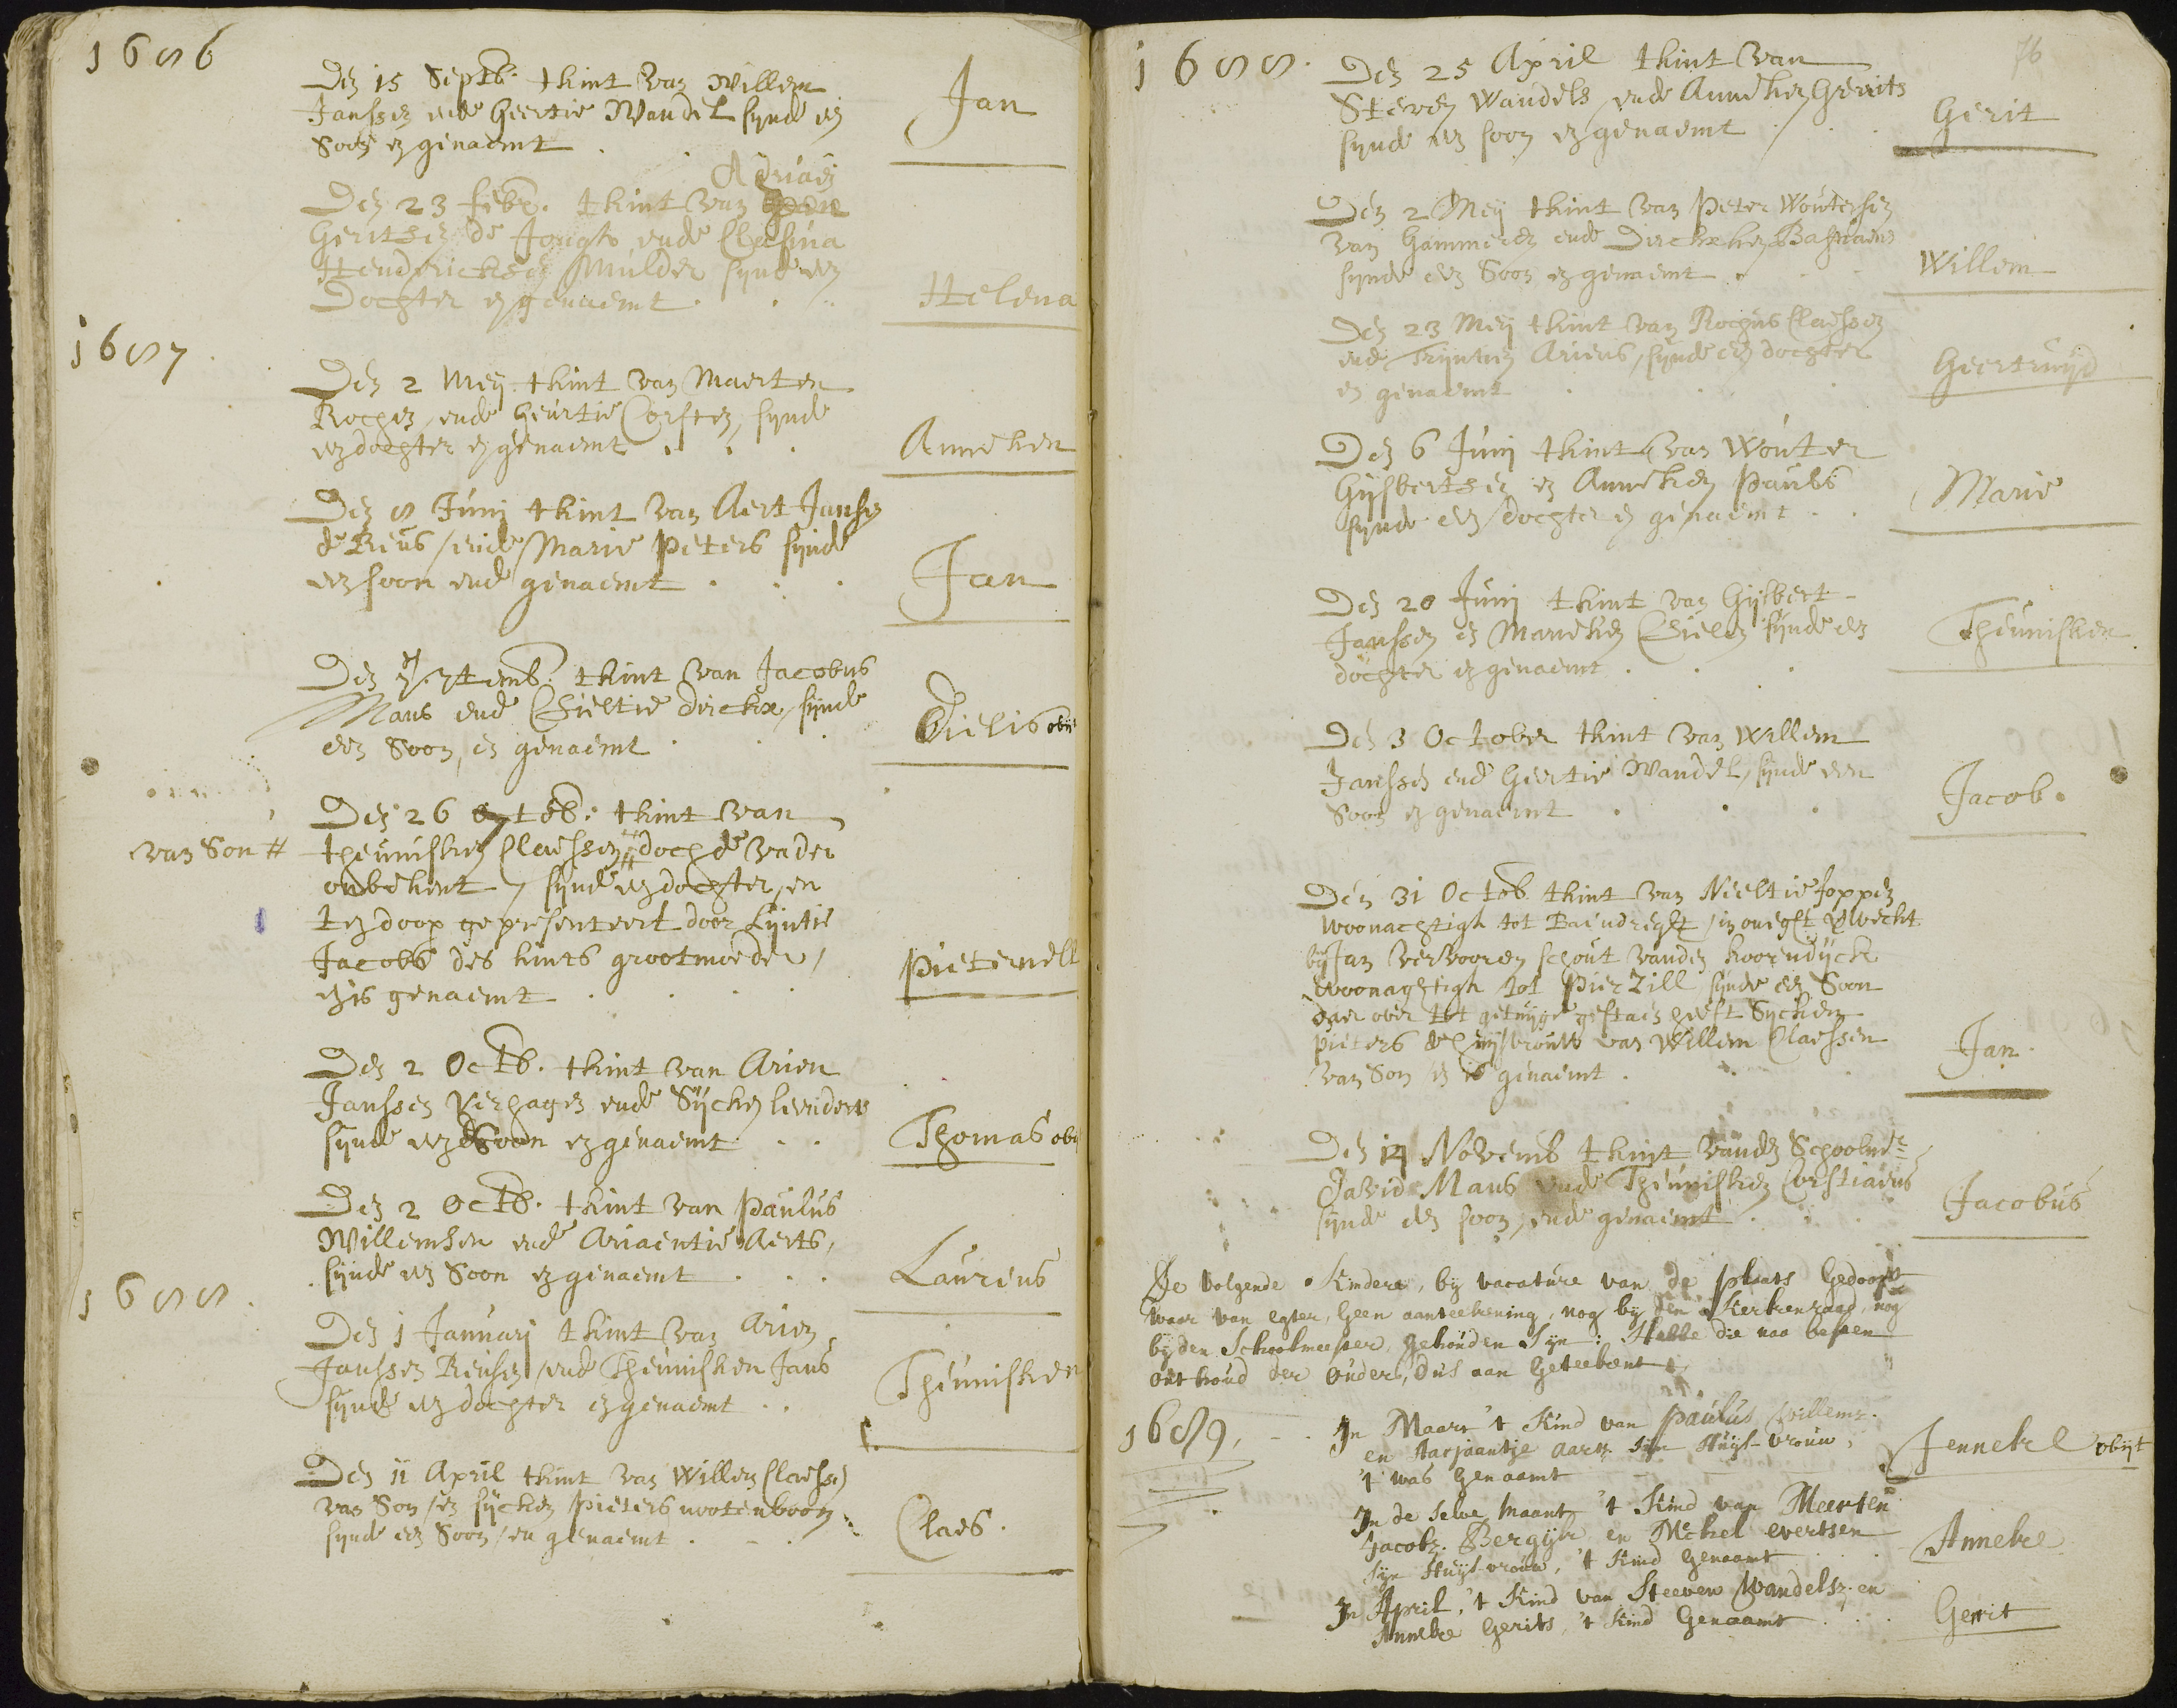 1686
Den 15 Septb. tkint van Willem
Janssen ende Geertie Wandel synde een
Soon en genaemt . . Jan
Adriaen
Den 23 febr. tkint van
Geritsen de Jongh ende Clasina
Hendericksen Mulder synde een
Dochter en genaemt . . . Helena
1687.
Den 2 Meij. tkint van Maerten
Rochen, ende Geertie Corsten, synde
een dochter en genaemt . . . Anneken
Den 8 Junij tkint van Aert Jansen
de Reus, ende Marie Peters synde
een soon ende genaemt . . . Jan
Den 7. 7temb. tkint van Jacobus
Maus ende Chieltie dirckx, synde
een Soon, en genaemt . . . Dielis obijt
Den 26 7tbb: tkint van
van Son # theunisken Claessen # doch de vader
onbekent, synde een dochter, en
ten doop gepresenteert door Lijntie
Jacobs des kints grootmoeder,
en is genaemt . . . . Pieternell
Den 2 Octb. tkint van Arien
Janssen Verhagen ende Sijcken leenderts
synde een Soon en genaemt . . Thomas obij
Den 2 Octb. tkint van Paulus
Willemsen ende Ariaentie Aerts,
synde een Soon en genaemt . . . Laurens
1688.
Den 1 Januarij tkint van Arien
Janssen Reusen, ende Theunisken Jans
synde een dochter en genaemt . . Theunisken
Den 11 April tkint van Willem Claessen
van Son, en sijcken pieters nootenboom
synde een Soon, en genaemt . . . Claes.
76
1688.
Den 25 April tkint van
Steven Wandels, ende Anneken Gerrits
synde een soon en genaemt . . Gerit
Den 2 Meij tkint van Peter Woutersen
van Gammeren ende Dirckxken Bastiaens
synde een Soon en genaemt . . . Willem
Den 23 Meij tkint van Rochus Claessen
ende Trijntien Ariens, synde een dochter
en genaemt . . . Geertruijd
Den 6 Junij tkint van Wouter
Gijsbertsen en Anneken Pauls
synde een dochter en genaemt . . Marie
Den 20 Junij tkint van Gijsbert
Janssen en Marieken Chielen synde een
dochter en genaemt . . . Theunisken
Den 3 October tkint van Willem
Janssen ende Geertie Wandel, synde een
Soon en genaemt . . . Jacob.
Den 31 Octob. tkint van Neeltie Joppen
woonachtigh tot Barendreght, in onegt verwecht
bij Jan Vervooren schout vanden koorndijck
woonaghtigh tot Pierzill, synde een Soon
daer over tot getuijge gestaen heeft Sijcken
pieters de huijsvrouw van Willem Claessen
van Son en is genaemt . . . Jan.
Den 14 Novemb tkint vanden Schoolmr.
David Maus ende Theunisken Corstiaens
synde een soon, ende genaemt . . . Jacobus
De volgende Kinderen, bij vacature van de plaats Gedoopt
waar van egter, Geen aanteekening, nog bij den Kerkenraad, nog
bij den Schoolmeester, gehouden Sijn: Hebbe die naa besten
onthoud der ouders, dus aan Geteekent,
1689, - . . In Maart 't Kind van Paulus Willemz.
en Aarjaantje Aarts. sijn Huijs-vrouw,
't was Genaamt - - Jenneke obijt
In de Selve Maant 't Kind van Meerten
Jacobz. Bergijk en Mechel evertsen
sijn Huijs-vrouw, 't Kind Genaamt . . Anneke
In April, 't Kind van Steeven Wandelsz. en
Anneke Gerits, 't Kind Genaamt . . . Gerrit